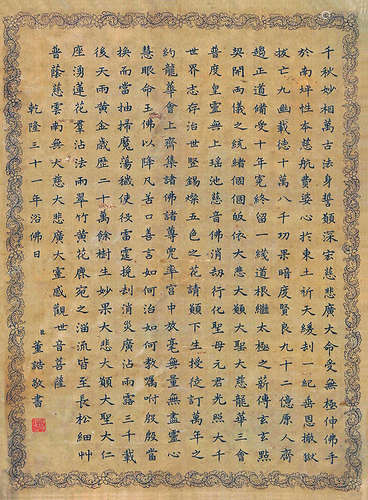 千秋妙相萬古法身誓願深宏慈悲廣大命受無極仲佛手
於南坪性本慈航費婆心於東土祈天緩刦一紀岳恩撤獄
拔亡九幽載德十萬八千功果暗度賢良九十二億原人齊
正道備受十年寃終留一綫道根繼太極之薪傳玄玄點
契開兩儀之統緒個個皈依大悲大願大聖大慈龍華三會
普度皇靈無上瑶池慈音佛消刦行化聖母元君光照大千
世界志存治世錫燦五色之花請願下生授從訂萬年之
約龍華會上齊集諸佛諸尊兜率宫中放毫無量無盡靈心
慧眼命玉佛以降凡苦口善言如何治如何教囑咐殷殷當
挨而當抽掃魔蕩穢使役雷霆挽刦消災廣沾雨露三千載
後天雨黄金歲歷二十萬餘樹生妙果大悲大願大聖大仁
座湧蓮花羣沾法雨翠竹黄花席宛之淄流皆至長松細艸
普蔭慈雲南無大慈大悲廣大靈感觀世音菩薩
乾隆三十一年浴佛日
臣董誥敬書